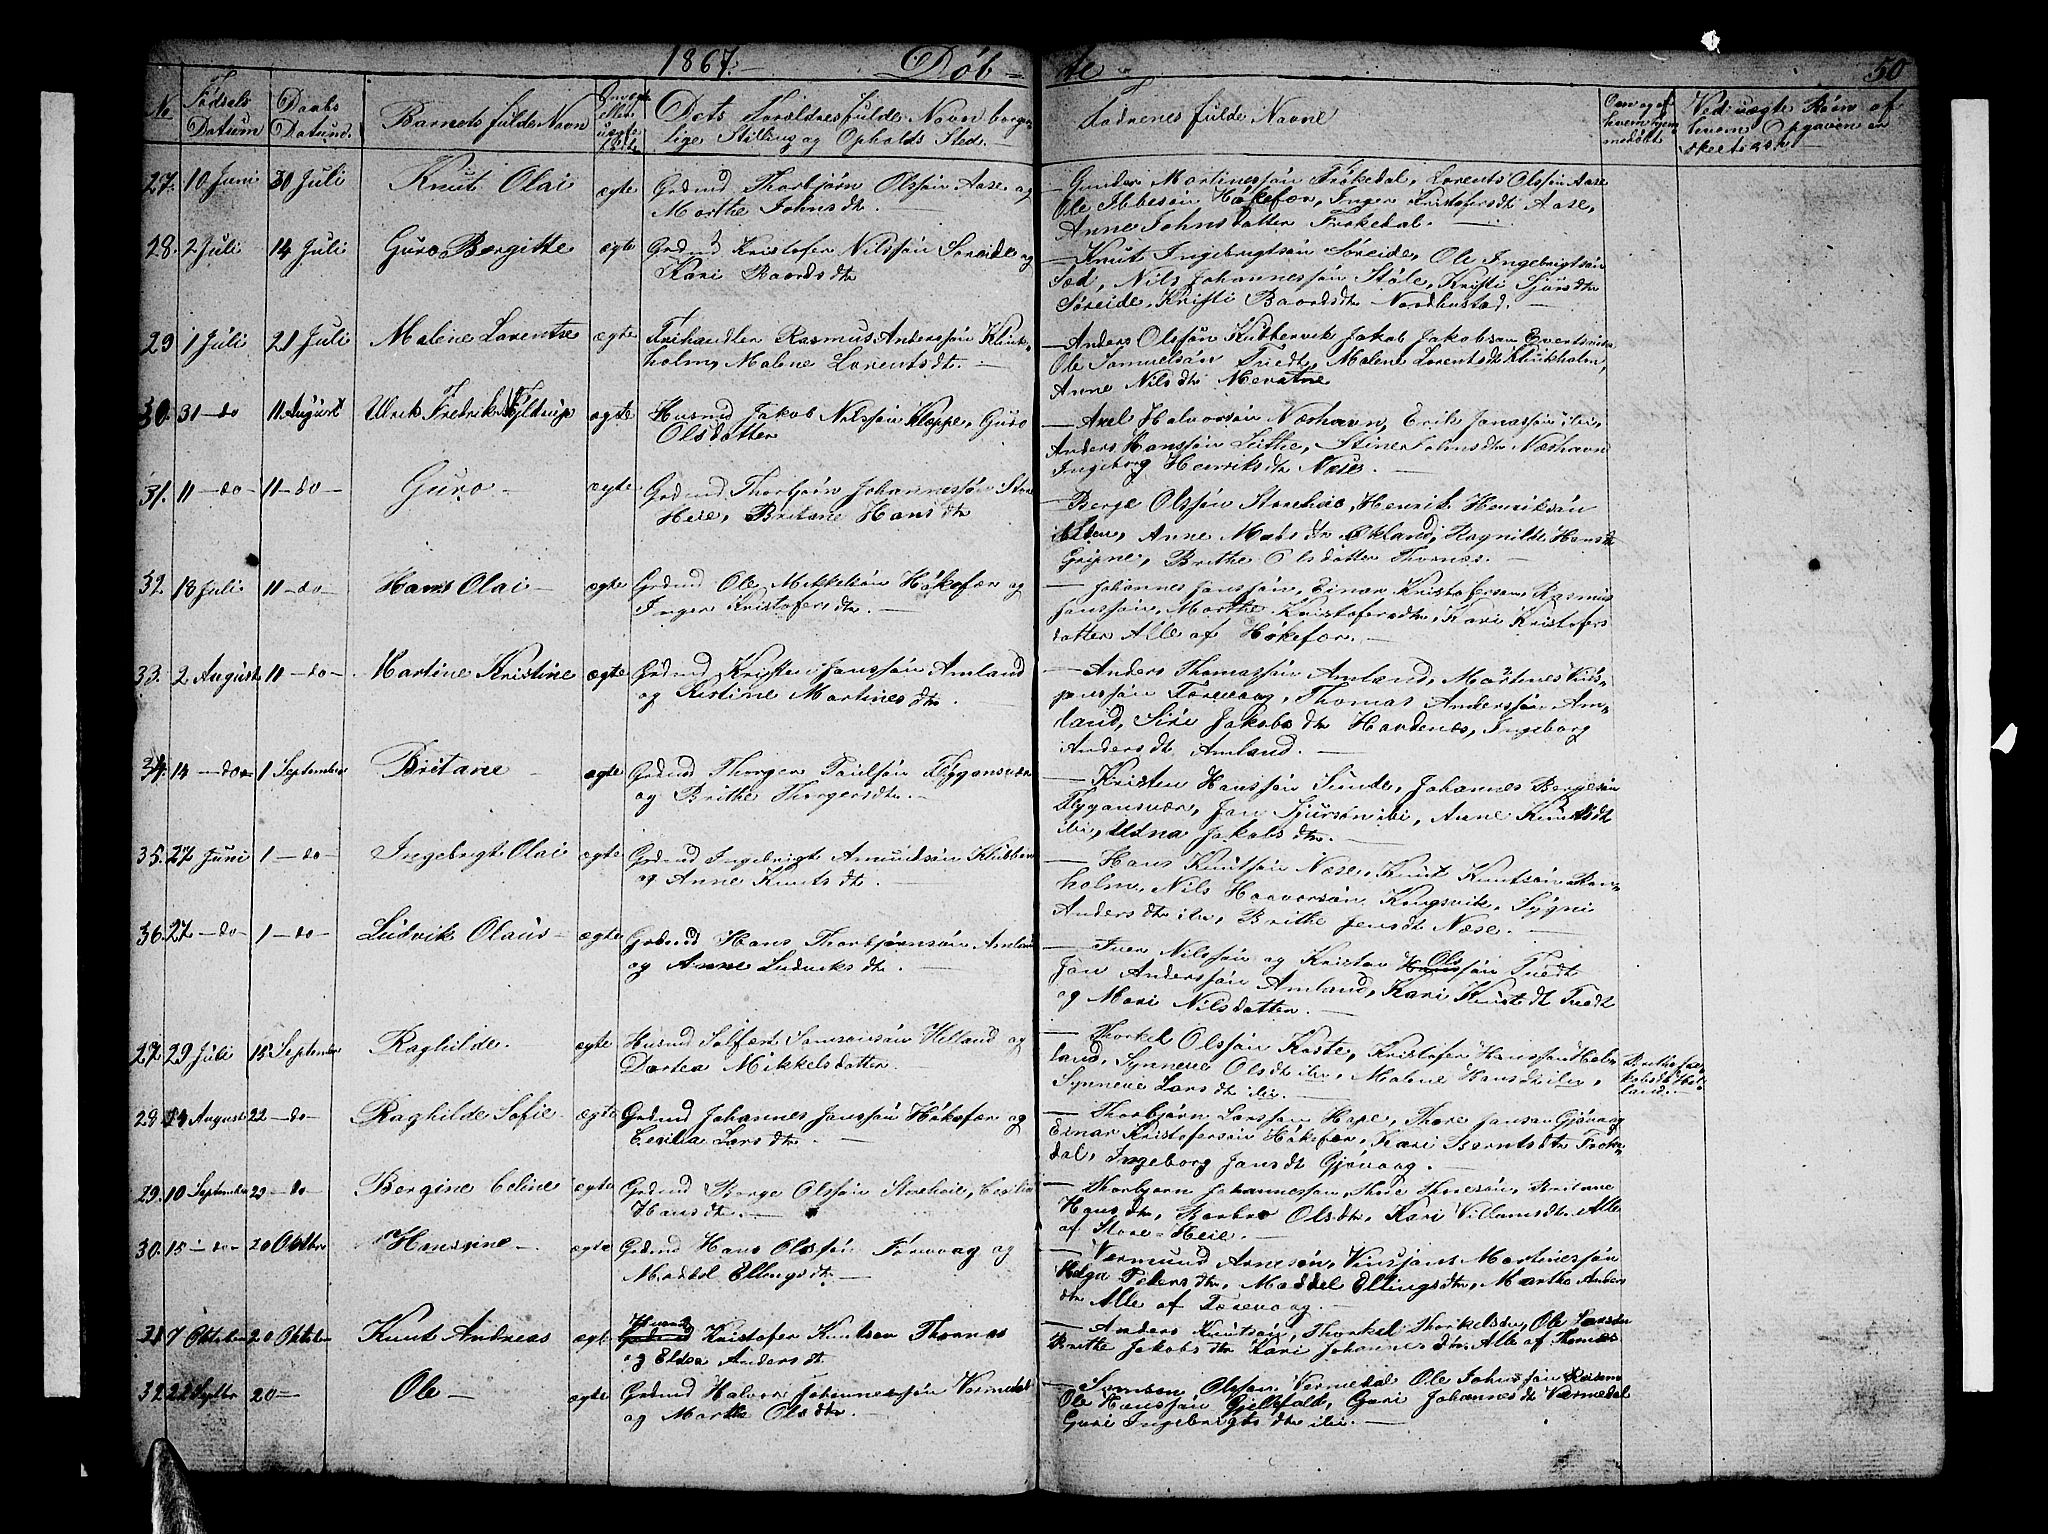 1867.- Døb- te- 50
No Fødsels Datum Daabs Datum. Barnets fulde Navn
Dets Forældres fulde Navn borger-
lige Stilling og Opholds Sted.-
Fadrenes fulde Navne
Ved uægte Børn af
hvem Opgaven er
skeet &c.
27. 10 Juni 30 Juli Knut Olai ægte Grdmd Thorbjørn Olssøn Aase og
Marthe Johnsdtr.-
- Gunder Martinessøn Frøkedal, Lorents Olssøn Aase
Ole Ibbesøn Høkefær, Inger Kristofersdtr Aase,
Anne Johnsdatter Frøkedal.-
28. 2 Juli 14 Juli Guro Bergitte ægte Grdmd Kristofer Nilssøn Søreide og
Kari Baardsdtr
- Knut Ingebrigtsøn Søreide, Ole Ingebrigtsøn
Sæd, Nils Johannessøn Støle, Kristi Sjursdtr
Søreide, Kristi Baardsdtr Nordhustad.-
29 1 Juli 21 Juli Malene Larentse ægte Frihandler Rasmus Anderssøn
holm, Malene Lorentsdtr.-
- Anders Olssøn Jakob Jakobsøn
Ole Samuelsøn Tvedt, Malene Lorentsdtr
Anne Nilsdtr
30. 31 -do 11 August Ulrik Fredrik ægte Husmd Jakob Nilssøn Kloppe, Guro
Olsdatter
- Axel Halvorsøn Næshavn, Erik Jonassøn ibi,
Anders Hanssøn Stine Næshavn
Ingeborg Henriksdtr Næse.-
31. 11 -do- 11 -do- Guro- ægte Grdmd Thorbjørn Johannessøn Store
Heie, Britane Hansdtr
- Berge Olssøn Storeheie, Henrik Henriksøn
Anne Madsdtr Økland, Ragnilde Hansdtr
Gripne, Brithe Olsdatter Thornæs.-
32. 18 Juli 11 -do- Hans Olai- ægte Grdmd Ole Mikkelsøn Høkefær og
Inger Kristofersdtr.-
- Johannes Janssøn, Einar Kristofersøn, Rasmus
Janssøn, Marthe Kristofersdtr, Kari Kristofers
datter Alle af Høkefær.-
33. 2 August 11 -do- Martine Kristine ægte Grdmd Kristen Janssøn Amland
og Kristine Martinesdtr.-
- Anders Thomassøn Amland, Martines
Førevaag, Thomas Anderssøn Am-
land, Siri Jakobsdtr Havdenes, Ingeborg
Andersdtr Amland.-
34. 14 -do- 1 September Britane- ægte Grdmd Thorger Poulsøn Flygansvær
og Brithe Thorgersdtr.-
- Kristen Hanssøn Sunde, Johannes Bergesøn
Flygansvær, Jan Sjursøn ibi, Anne Knutsdtr
ibi, Edna Jakobsdtr.-
35. 27 Juni 1 -do- Ingebrigt Olai ægte Grdmd Ingebrigt Amundsøn Klubben
og Anne Knutsdtr.-
- Hans Knutsøn Næse, Knut Knutsøn
holm, Nils Haavorsøn Kongsvik, Sygni
Andersdtr ibi, Brithe Jensdtr Næse.-
36. 27 -do- 1 -do- Ludvik Olaus- ægte Grdmd Hans Thorbjørnsøn Amland
og Anne Ludviksdtr.-
- Iver Nilssøn og Kristen Olssøn Tvedt
Jan Anderssøn Amland, Kari Knutsdtr Tvedt
og Mari Nilsdatter.-
27. 29 Juli 15 September Raghilde. ægte Husmd Solfæst Samsonsøn Helland og
Dortea Mikkelsdatter.-
- Thorkel Olssøn Koste, Kristofer Hanssøn Hel-
land, Synneve Olsdtr ibi, Malene Hansdtr ibi,
Synneve Larsdtr ibi.-
28. 14 August 22 -do- Raghilde Sofie- ægte Grdmd Johannes Janssøn Høkefær og
Cecilia Larsdtr.-
- Thorbjørn Larssøn Hope, Thore Jansøn Gjøvaag
Einar Kristofersøn Høkefær, Kari Berntsdtr Frøke-
dal, Ingeborg Jansdtr Gjøvaag.-
29. 10 September 29 -do- Bergine Celine- ægte Grdmd Berge Olssøn Storeheie, Cecilia
Hansdtr.-
- Thorbjørn Johannessøn, Thore Thoresøn, Britane
Hansdtr, Barbro Olsdtr, Kari Villumsdtr Alle
af Store-Heie.-
30. 15 -do- 20 Oktbr Hansine- ægte Grdmd Hans Olssøn Førevaag og
Maddel Ellingsdtr-
- Vermund Arnesøn, Martinessøn
Helga Pedersdtr, Maddel Ellingsdtr, Marthe Anders
dtr Alle af Førevaag.-
31 7 Oktober 20 Oktober Knut Andreas ægte Husmd Kristofer Knutsøn Thornæs
og Eldea Andersdtr
- Anders Knutsøn, Thorkel Thorkelsøn, Ole
Brithe Jakobsdtr Kari Johannesdtr. Alle af Thornæs
32 20- Ole- ægte Grdmd Halvor Johannessøn Vermedal
og Marthe Olsdtr.-
- Samson Olssøn Vermedal Ole Johnssøn
Ole Hanssøn Guri Johannesdtr Vermedal
Guri Ingebrigtsdtr ibi.-